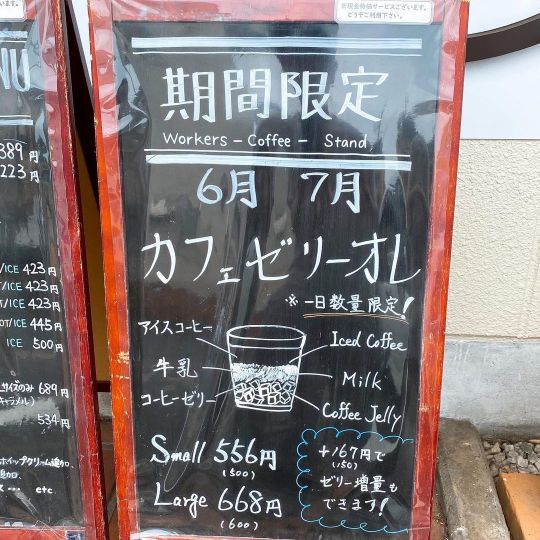 NU
389円
223円
ICE 423円
T/ICE 423円
T/ICE 423円
OT/ICE 445円
ICE 500円
Lサイズのみ 689円
キャラメル)
534円
ホイップクリーム追加、
追加、
ス… etc
います。
新現金特価サービスございます。
どうぞご利用下さい。
期間限定
Workers - Coffee - Stand
6月 7月
カフェゼリーオレ
※一日数量限定!
アイスコーヒー
Iced Coffee
牛乳
Milk
コーヒーゼリー
Coffee Jelly
Small 556円
(500)
Large 668円
(600)
+167円で
(150)
ゼリー増量も
できます!